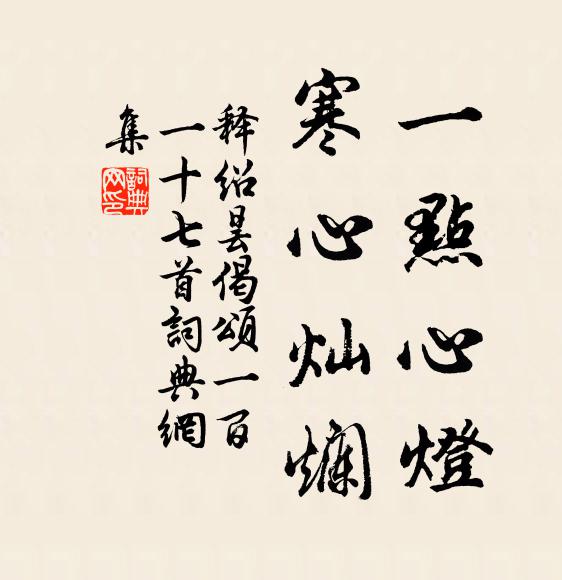 一點心燈
寒心灿爛
释绍昙偈頌一百
一十七首詞典網
集
詞典
网印